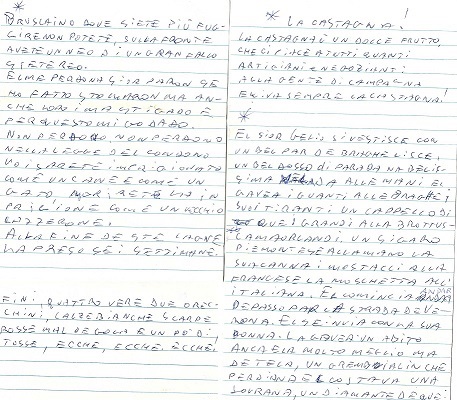 *
BRUSCAINO DOVE SIETE PIÙ FUG-
GIRE NON POTETE, SULLA FRONTE
AVETE UN NEO DI UN GRAN FALLO
SIETE REO.
EL ME PERDONA SIOR PARON SE
HO FATTO STO MA AN-
CHE LORI MA STIGADO E
PER QUESTO MI GO DADO.
NON PERDONO, NON PERDONO
NELLA LEGGE DEL CONDONO
VOI SARETE IMPRIGIONATO
COME UN CANE E COME UN
GATO MORIRETE LÀ IN
PRIGIONE COME UN VECHIO
LAZZERONE.
ALLA FINE DE STE LAGNE
LA PRESO SEI SETTIMANE.
FINI, QUATTRO VERE DUE OREC-
CHINI, CALZE BIANCHE SCARPE
ROSSE MAL DE GOLA E UN PO' DI
TOSSE, ECCHE, ECCHE, ECCHE.
*
LA CASTAGNA!
LA CASTAGNA È UN DOLCE FRUTTO,
CHE CI PIACE A TUTTI QUANTI
ARTIGIANI E NEGOZIANTI
ALLA GENTE DI CAMPAGNA
EVVIVA SEMPRE LA CASTAGNA!
*
EL SIOR GELIO SI VESTISCE CON
UN BEL PAR DE BRAGHE LISCE,
UN BEL DOSSO DI PARADA NELIS-
SIMA ALLE MANI EL
GAVEA I GUANTI ALLE BRAGHE I
SUOI TIRANTI UN CAPPELLO DI
QUEI GRANDI ALLA BROTTUS-
CAMBURLANDI, UN SIGARO
PIEMONTESE ALLA MANO LA
SUA CANNA I MOSTACCI ALLA
FRANCESE LA MOSCHETTA ALL'
ITALIANA. EL COMINCIA ANDAR
DE PASSO PAR LA STRADA DE VE-
RONA. EL S'E INVIA CON LA SUA
DONNA. LA GAVEA UN ABITO
ANCA ELA MOLTO MEGLIO MA
DE TELA, UN GREMBIALIN CHE
PERDIANA EL COSTAVA UNA
SOVRANA, UN DIAMANTE DE QUEI